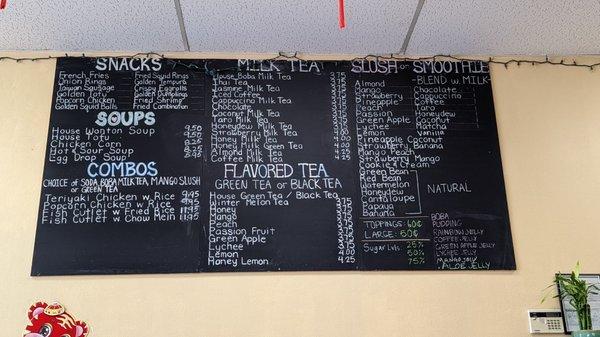 SNACKS
French Fries
Onion Rings
Taiwan Sausage
Golden Tofu
Popcorn Chicken
Golden Squid Balls
Fried Squid Rings
Golden Tempura
Crispy Eggrolls
Golden Dumplings
Fried Shrimp
Fried Combination
SOUPS
House Wonton Soup 9.50
House Tofu
Chicken Corn
Hot & Sour Soup
Egg Drop Soup
COMBOS
CHOICE of SODA, BOBA MILK TEA, MANGO SLUSH
or GREEN TEA
Teriyaki Chicken w Rice 9.95
Popcorn Chicken w Rice 9.95
Fish Cutlet w Fried Rice 11.95
Fish Cutlet w Chow Mein 11.95
MILK TEA
House Boba Milk Tea 3.75
Thai Tea
Jasmine Milk Tea
Iced Coffee
Cappuccino Milk Tea
Chocolate
Coconut Milk Tea
Taro Milk Tea
Honeydew Milk Tea
Strawberry Milk Tea
Honey Milk Tea
Honey Milk Green Tea
Almond Milk Tea 4.25
Coffee Milk Tea 4.25
FLAVORED TEA
GREEN TEA or BLACK TEA
House Green Tea / Black Tea
Winter Melon Tea 3.75
Honey 3.75
Mango 3.75
Peach 3.75
Passion Fruit 3.75
Green Apple 3.75
Lychee 3.75
Lemon 4.00
Honey Lemon 4.25
SLUSH or SMOOTHIE
-BLEND w. MILK-
Almond
Mango
Strawberry
Pineapple
Peach
Passion
Green Apple
Lychee
Lemon
Pineapple Coconut
Strawberry Banana
Mango Peach
Strawberry Mango
Cookie & Cream
Chocolate
Cappuccino
Coffee
Taro
Honeydew
Coconut
Matcha
Vanilla
Green Bean
Red Bean
Watermelon
Honeydew
Cantaloupe
Papaya
Banana
NATURAL
TOPPINGS: 60¢
LARGE: 50¢
Sugar Lvls: 25%
50%
75%
BOBA
PUDDING
RAINBOW JELLY
COFFEE JELLY
GREEN APPLE JELLY
LYCHEE JELLY
MANGO JELLY
ALOE JELLY